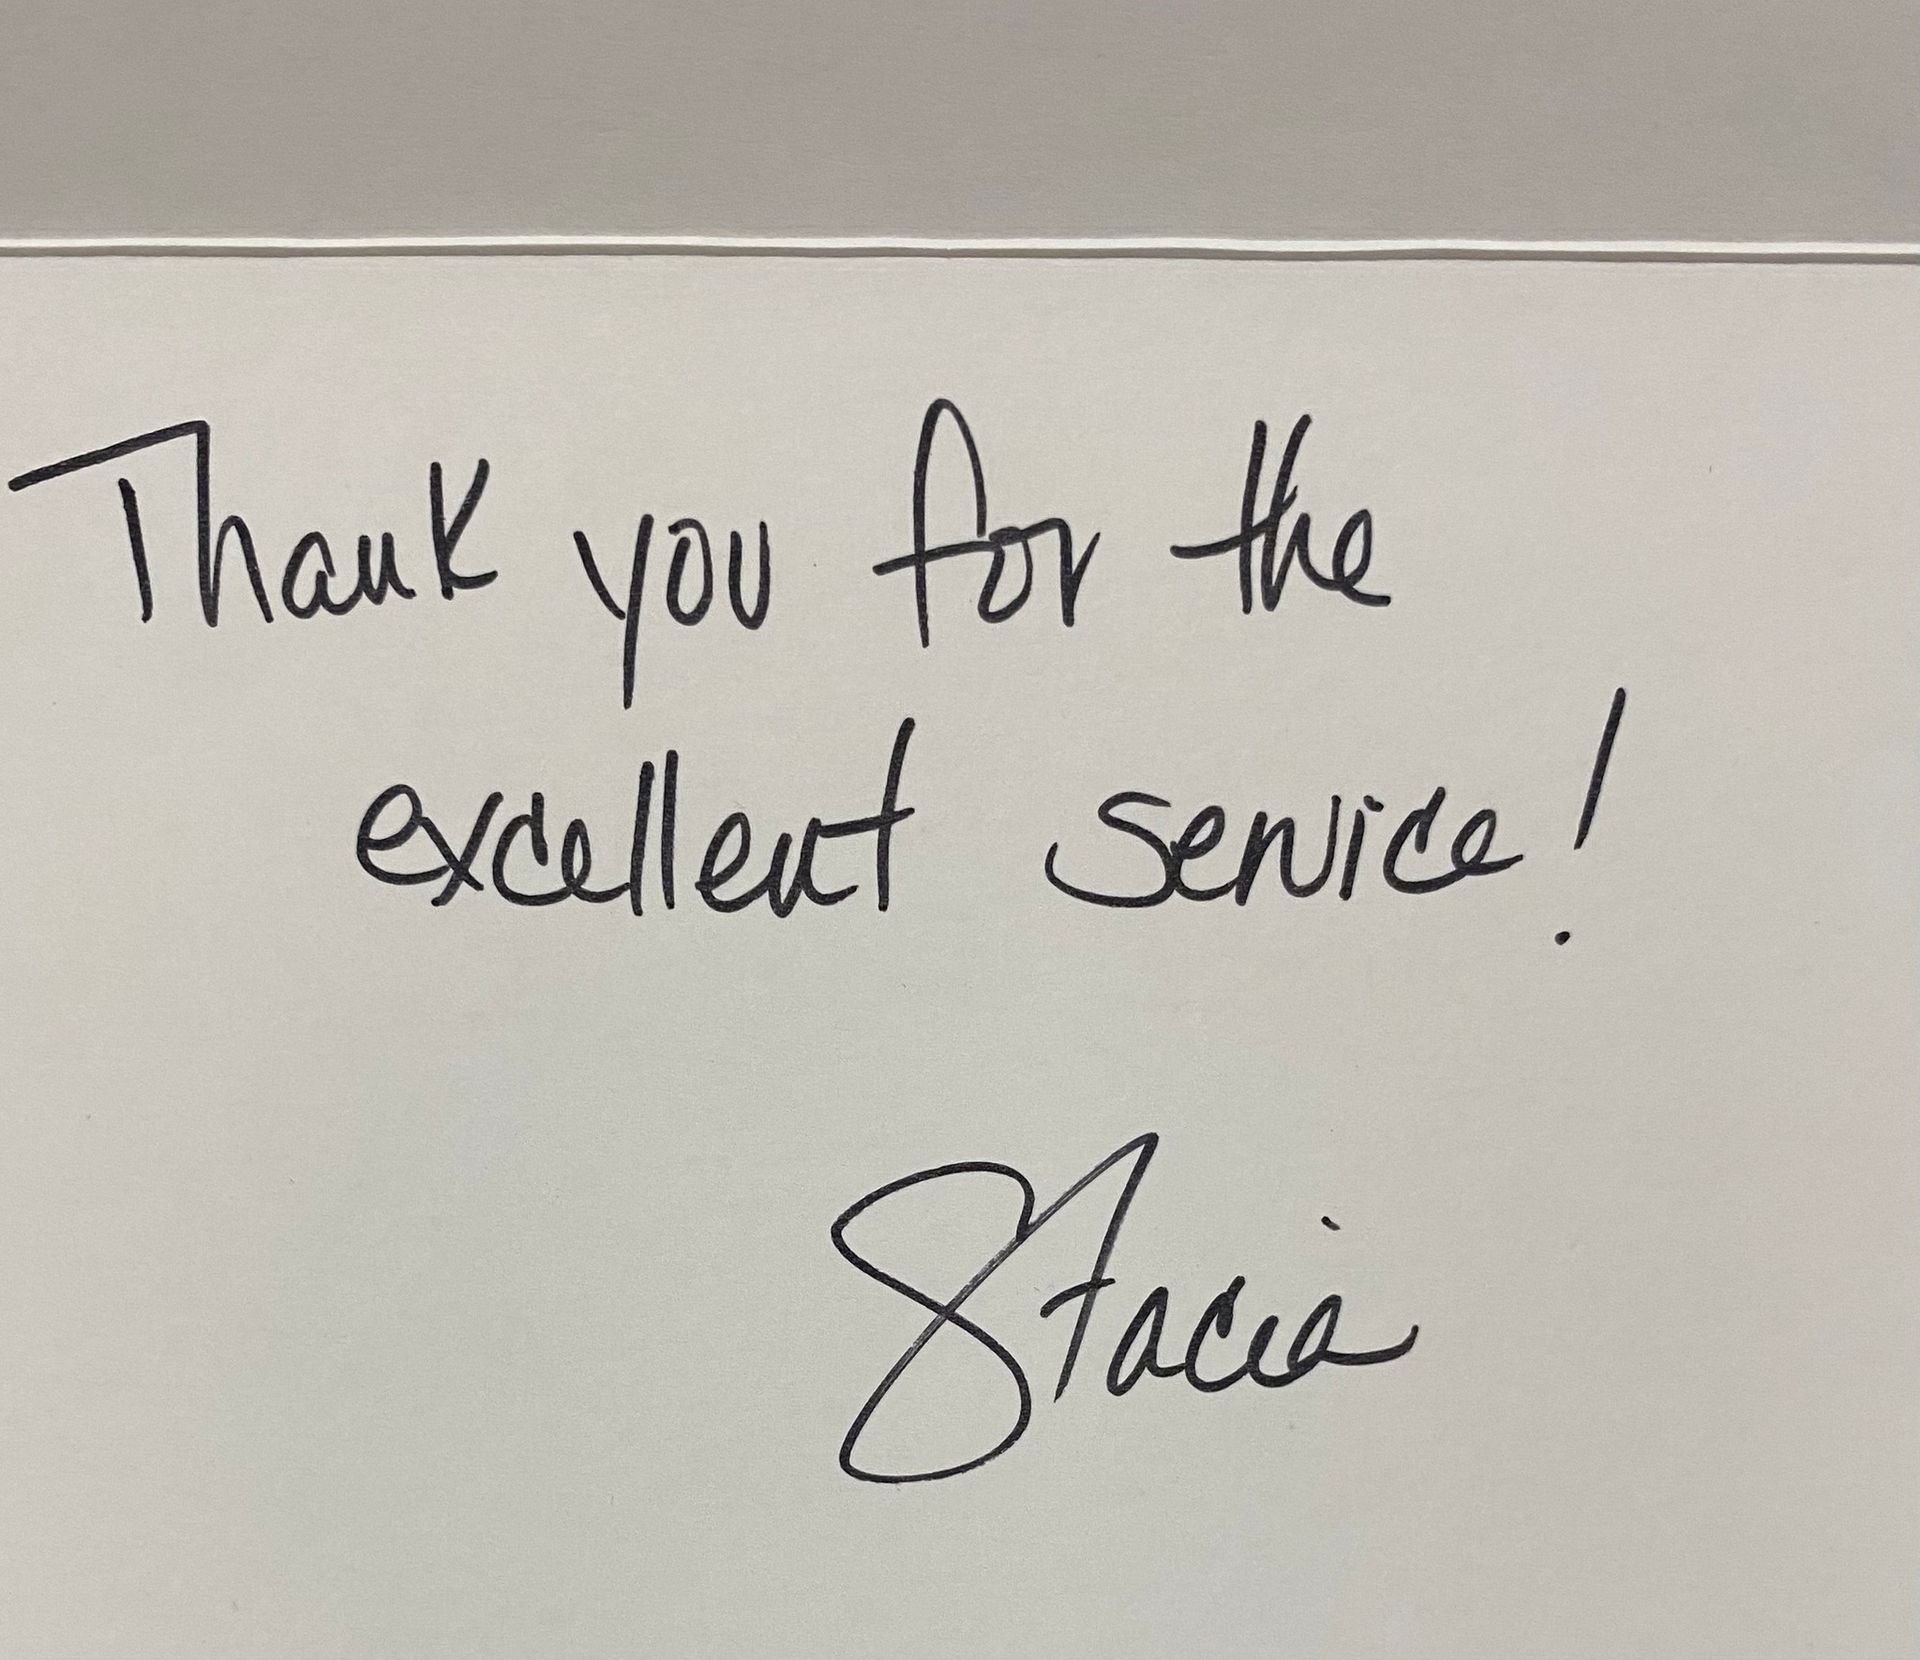 Thank you for the
excellent service!
Stacia